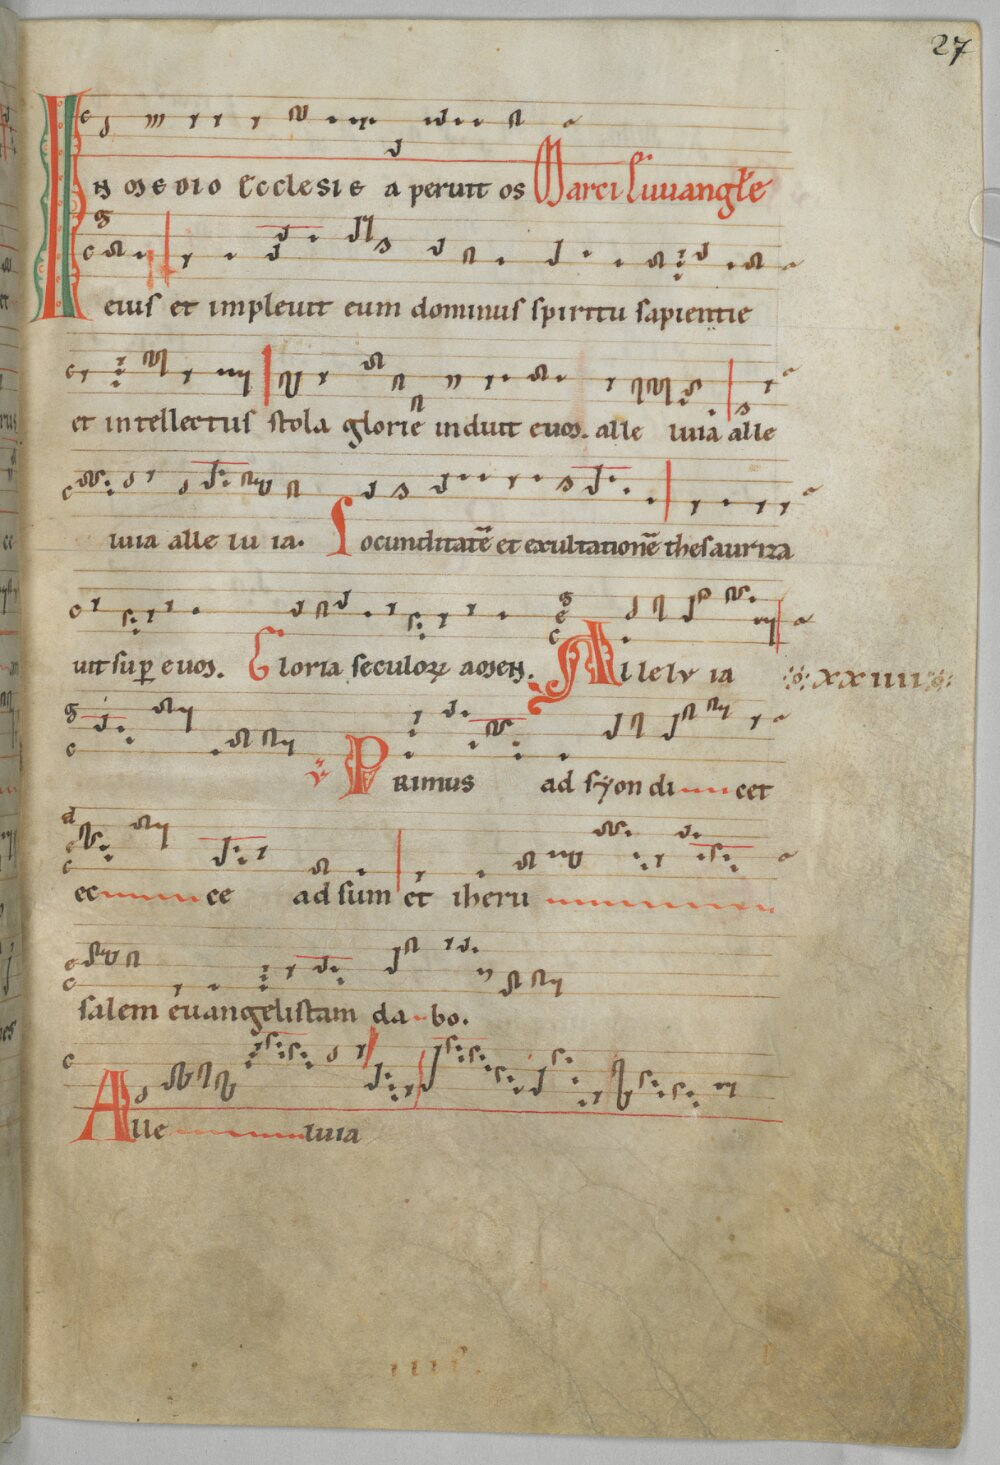 27
IN MEDIO Ecclesie a peruit os Marci Euuangłe
eius et impleuit eum dominus spiritu sapientie
et intellectus stola glorie induit euos. alle luia alle
luia alle lu ia. Iocunditatē et exultationē thesauriza
uit sup euos. Gloria seculoꝝ amen. Allelv ia xxiiii
Primus ad syon di cet
ec ce ad sum et iheru
salem euangelistam da bo.
Alle luia
iiii.